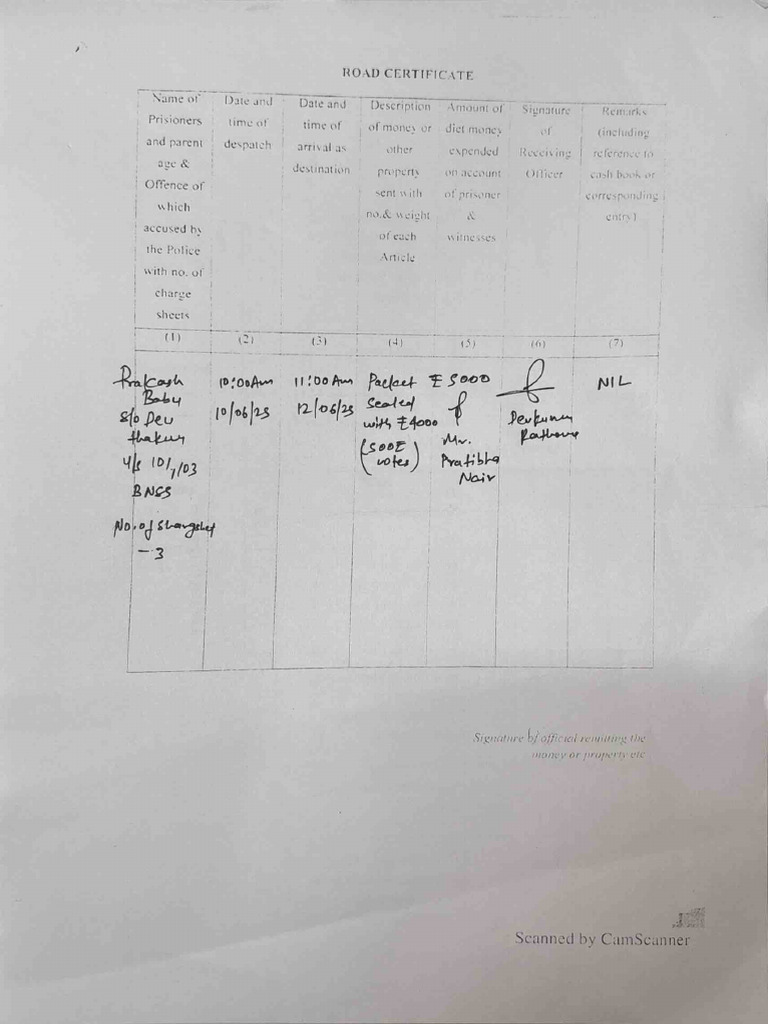 ROAD CERTIFICATE
Name of
Prisioners
and parent
age &
Offence of
which
accused by
the Police
with no. of
charge
sheets
Date and
time of
despatch
Date and
time of
arrival as
destination
Description
of money or
other
property
sent with
no.& weight
of each
Article
Amount of
diet money
expended
on account
of prisoner
&
witnesses
Signature
of
Receiving
Officer
Remarks
(including
reference to
cash book or
corresponding
entry)
(1) (2) (3) (4) (5) (6) (7)
Prakash
Baby
S/o Dev
thakur
U/s 10/7/03
BNSS
No. of
- 3
10:00Am
10/06/25
11:00Am
12/06/25
Packet
Sealed
with ₹4000
(500₹
notes)
₹ 5000
Mr.
Pratibha
Nair
Rathore
NIL
Signature of official remitting the
money or property etc
Scanned by CamScanner